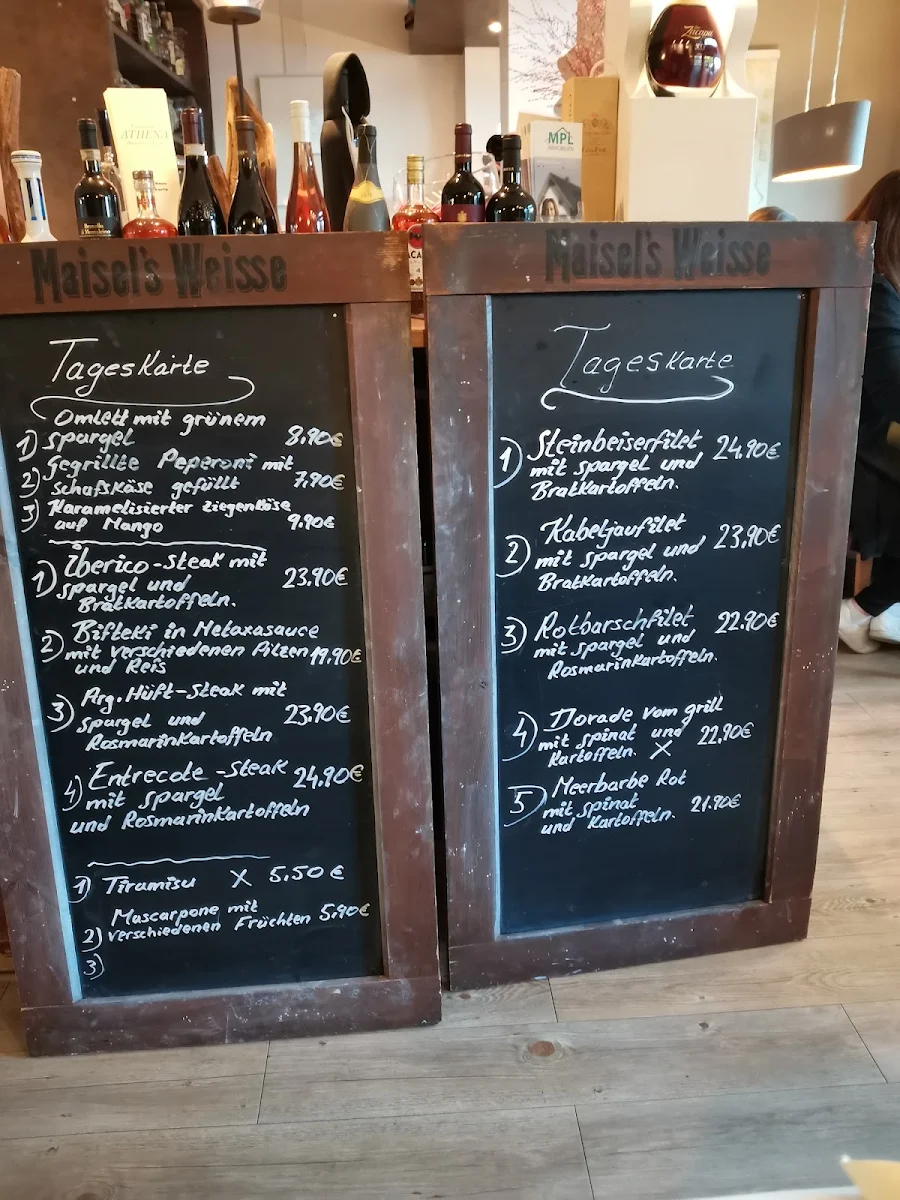 Zacapa
ATHENA
MPL
Maisel's Weisse
Tageskarte
Omlett mit grünem
1) Spargel 8,90€
2) Gegrillte Peperoni mit
Schafskäse gefüllt 7.90€
3) Karamelisierter Ziegenkäse
auf Mango 9.90€
1) Iberico-Steak mit
Spargel und 23.90€
Bratkartoffeln.
2) Bifteki in Metaxasauce
mit verschiedenen Pilzen 19,90€
und Reis
Arg. Hüft-Steak mit
3) Spargel und 23.90€
Rosmarinkartoffeln
4) Entrecote-Steak 24,90€
mit Spargel
und Rosmarinkartoffeln
1) Tiramisu X 5.50€
Mascarpone mit
2) verschiedenen Früchten 5,90€
3)
Maisel's Weisse
Tageskarte
1) Steinbeiserfilet 24,90€
mit Spargel und
Bratkartoffeln.
2) Kabeljaufilet 23,90€
mit Spargel und
Bratkartoffeln.
3) Rotbarschfilet 22.90€
mit Spargel und
Rosmarinkartoffeln.
4) Dorade vom Grill
mit Spinat und 22,90€
Kartoffeln. X
5) Meerbarbe Rot
mit Spinat 21.90€
und Kartoffeln.